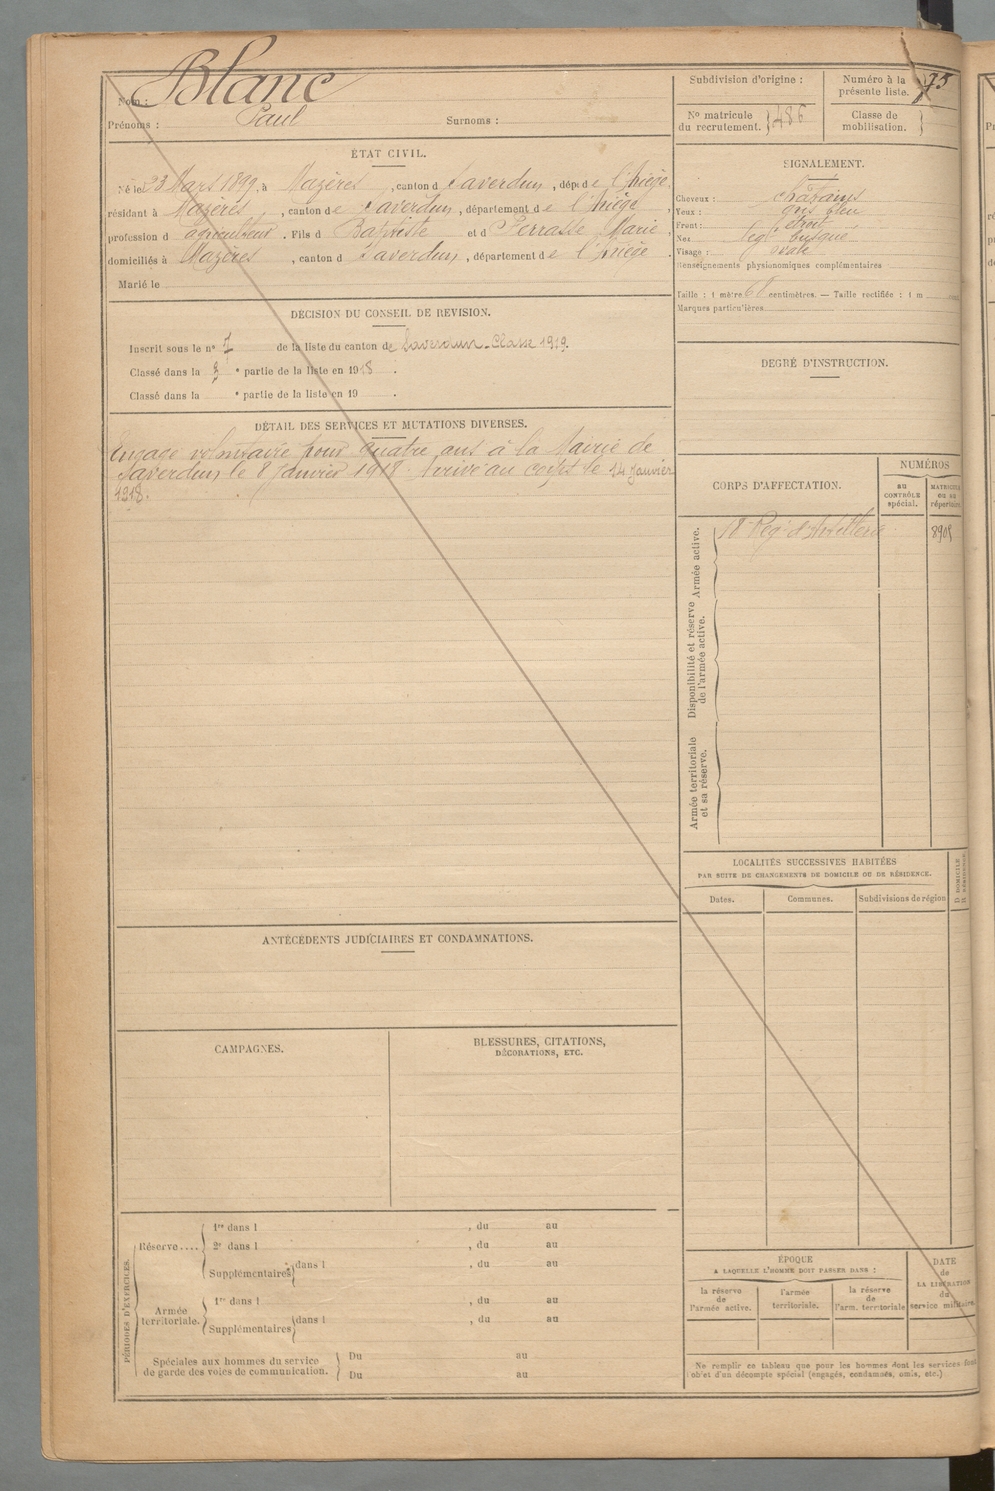 Nom : Blanc
Prénoms : Paul Surnoms :
Subdivision d'origine :
Numéro à la présente liste. 75
No matricule du recrutement. 1486
Classe de mobilisation.
ÉTAT CIVIL.
Né le 23 Mars 1899, à Mazères, canton de Saverdun, dépt de l'Ariège,
résidant à Mazères, canton de Saverdun, département de l'Ariège,
profession d agriculteur. Fils d Baptiste et d Terrasse Marie,
domiciliés à Mazères, canton d Saverdun, département de l'Ariège.
Marié le
SIGNALEMENT.
Cheveux : châtains
Yeux : gris bleu
Front : étroit
Nez légt busqué
Visage : ovale
Renseignements physionomiques complémentaires
Taille : 1 mètre 68 centimètres. — Taille rectifiée : 1 m
Marques particulières
DÉCISION DU CONSEIL DE REVISION.
Inscrit sous le no 7 de la liste du canton de Saverdun - Classe 1919.
Classé dans la 3e partie de la liste en 1918.
Classé dans la e partie de la liste en 19 .
DEGRÉ D'INSTRUCTION.
DÉTAIL DES SERVICES ET MUTATIONS DIVERSES.
Engagé volontaire pour quatre ans à la Mairie de
Saverdun le 8 Janvier 1918. Arrivé au corps le 14 Janvier
1918.
CORPS D'AFFECTATION.
NUMÉROS
au CONTRÔLE spécial.
MATRICULE ou au répertoire.
Armée active.
18e Rég. d'Artillerie 8905
Disponibilité et réserve de l'armée active.
Armée territoriale et sa réserve.
LOCALITÉS SUCCESSIVES HABITÉES
PAR SUITE DE CHANGEMENTS DE DOMICILE OU DE RÉSIDENCE.
Dates. Communes. Subdivisions de région
D. DOMICILE
R. RÉSIDENCE.
ANTÉCÉDENTS JUDICIAIRES ET CONDAMNATIONS.
CAMPAGNES.
BLESSURES, CITATIONS,
DÉCORATIONS, ETC.
PÉRIODES D'EXERCICES.
Réserve....
1re dans l , du au
2e dans l , du au
Supplémentaires dans l , du au
Armée territoriale.
1re dans l , du au
Supplémentaires dans l , du au
Spéciales aux hommes du service
de garde des voies de communication.
Du au
Du au
ÉPOQUE
A LAQUELLE L'HOMME DOIT PASSER DANS :
la réserve de l'armée active.
l'armée territoriale.
la réserve de l'arm. territoriale
DATE de LA LIBÉRATION du service militaire.
Ne remplir ce tableau que pour les hommes dont les services font
objet d'un décompte spécial (engagés, condamnés, omis, etc.)